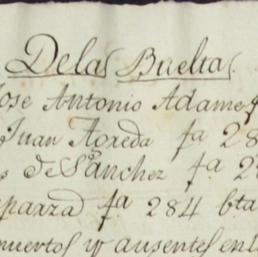 De las Bueltas.
ose Antonio Adame f
Juan Azeda fa 28
s de Sanchez fa 2
parza fa 284 bta
muertos y ausentes en l